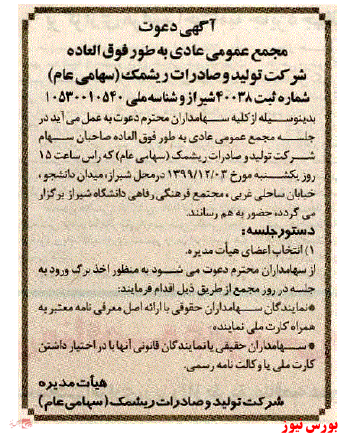 آگهی دعوت
مجمع عمومی عادی به طور فوق العاده
شرکت تولید و صادرات ریشمک (سهامی عام)
شماره ثبت ۴۰۰۳۸ شیراز و شناسه ملی ۱۰۵۳۰۰۱۰۵۴۰
بدینوسیله از کلیه سهامداران محترم دعوت به عمل می آید در
جلسه مجمع عمومی عادی به طور فوق العاده صاحبان سهام
شرکت تولید و صادرات ریشمک (سهامی عام) که راس ساعت ۱۵
روز یکشنبه مورخ ۱۳۹۹/۱۲/۰۳ در محل شیراز، میدان دانشجو،
خیابان ساحلی غربی، مجتمع فرهنگی رفاهی دانشگاه شیراز برگزار
می گردد، حضور به هم رسانند.
دستور جلسه:
۱) انتخاب اعضای هیأت مدیره.
از سهامداران محترم دعوت می شود به منظور اخذ برگ ورود به
جلسه در روز مجمع از طریق ذیل اقدام فرمایند:
*نمایندگان سهامداران حقوقی با ارائه اصل معرفی نامه معتبر به
همراه کارت ملی نماینده
* سهامداران حقیقی یا نمایندگان قانونی آنها با در اختیار داشتن
کارت ملی یا وکالت نامه رسمی.
هیأت مدیره
شرکت تولید و صادرات ریشمک (سهامی عام)
بورس نیوز